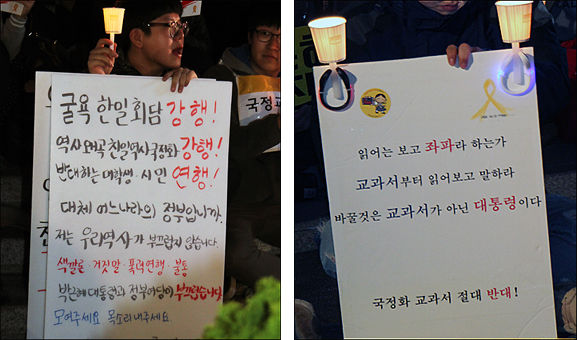 굴욕 한일회담 강행!
역사왜곡 친일역사국정화 강행!
반대하는 대학생·시민 연행!
대체 어느나라의 정부입니까.
저는 우리역사가 부끄럽지 않습니다.
색깔론·거짓말·폭력연행·불통
박근혜 대통령과 정부여당이 부끄럽습니다.
모여주세요. 목소리내주세요.
국정
읽어는 보고 좌파라 하는가
교과서부터 읽어보고 말하라
바꿀것은 교과서가 아닌 대통령이다
국정화 교과서 절대 반대!